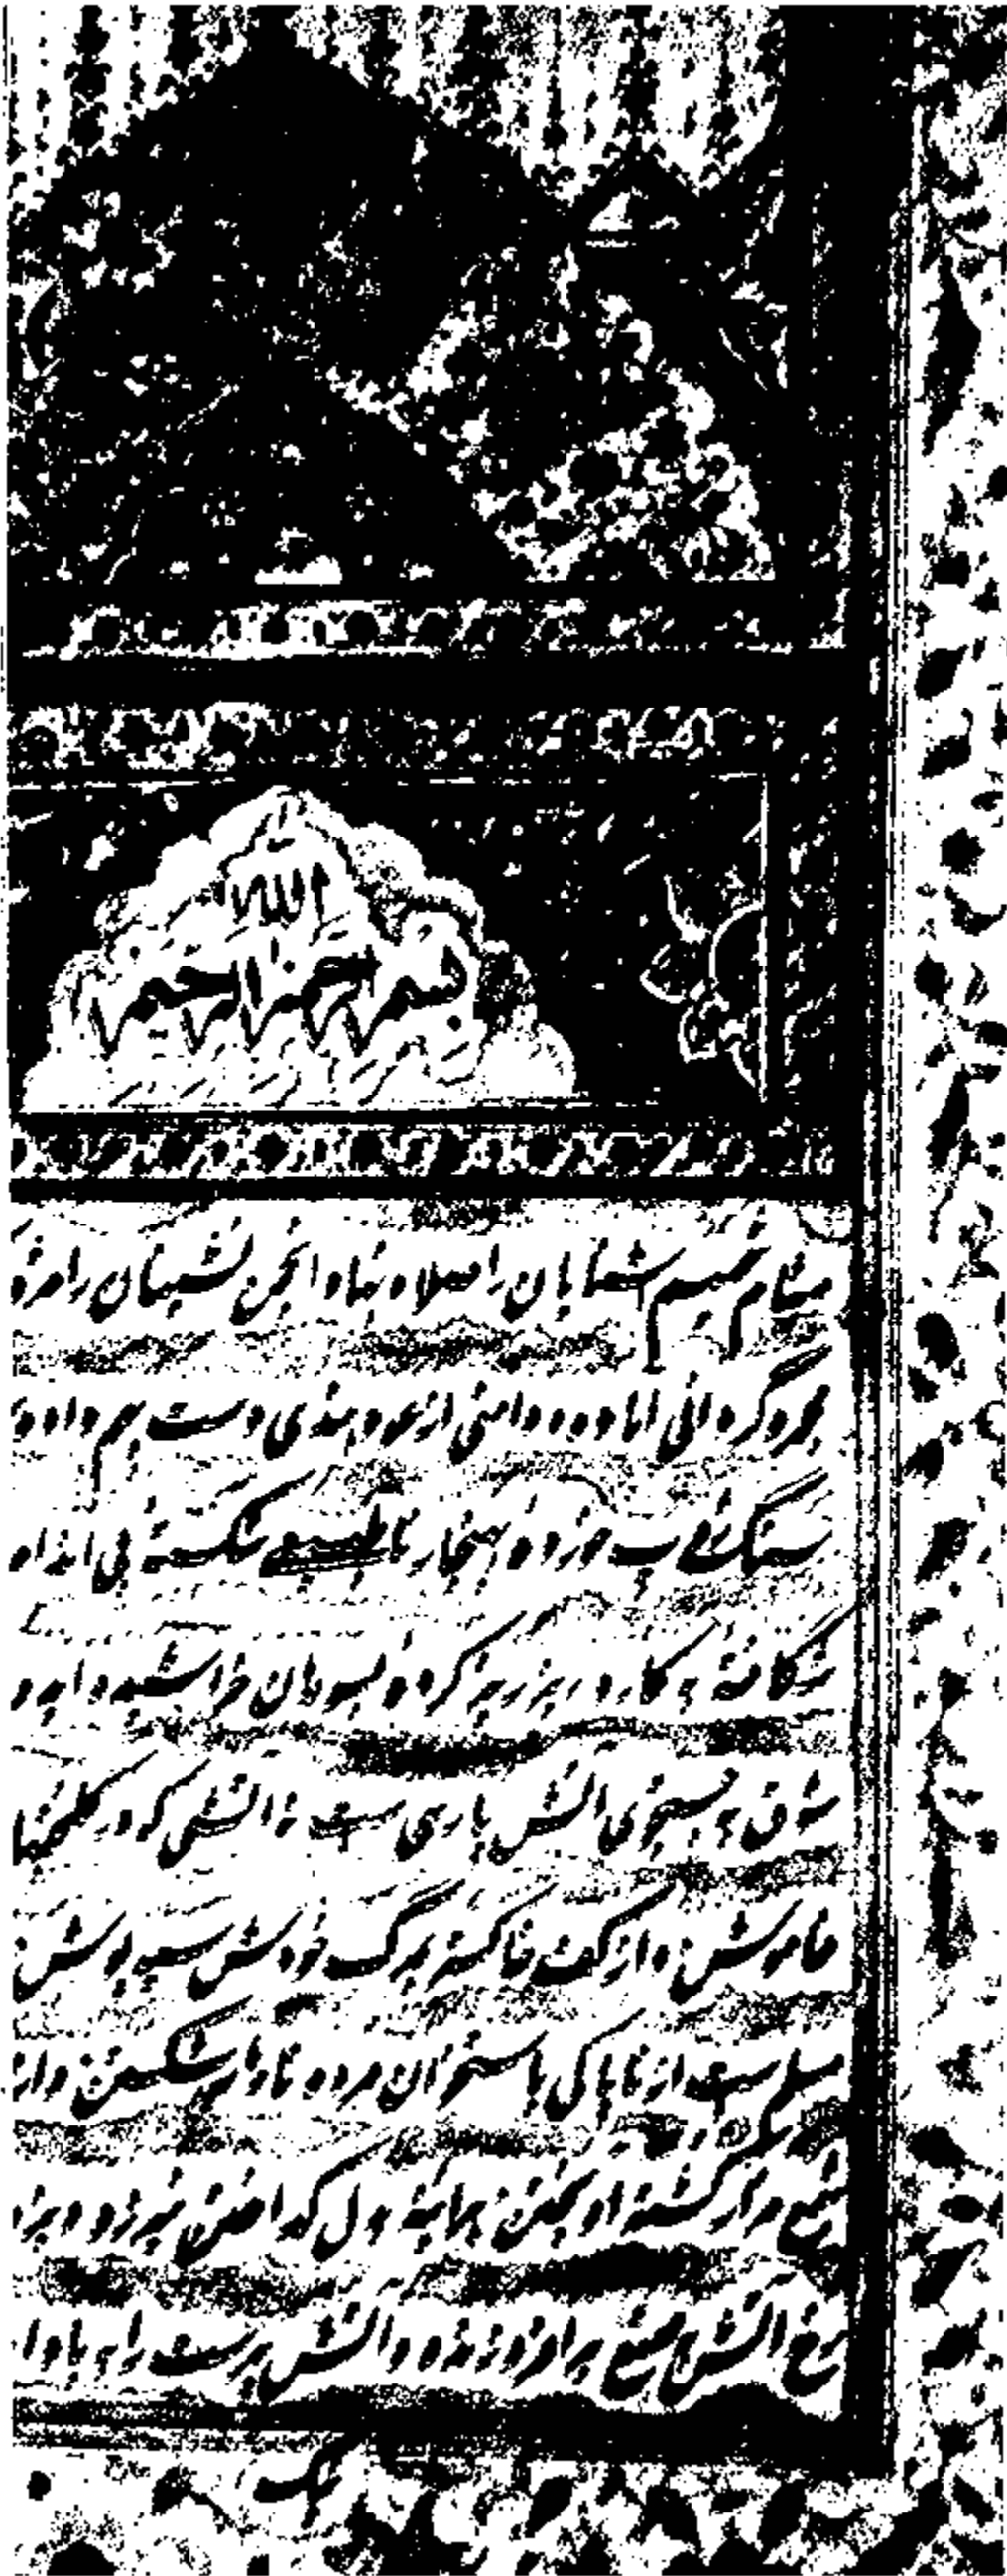 بسم الله الرحمن الرحیم
مشام شمیم آشنایان را صلا و نهاد انجمن نشینان را مژد
مجمره گردانی آماده و دامنی از عود هندی دست بهم داده
سنگ خورده بهنجار ناطبیعی شکسته بی اندام
شگافته به کارد ریز ریز کرده بسوهان خراشیده ایدو
شوق بجستجوی آتش پارسی ست نه آتشی که در گلخنها
خاموش و از کف خاکستر بمرگ خودش سیه پوش
مسلم ست از ناپاکی باستخوان مرده ناهار شکستن و از
شمع مزار کشته آویختن هرآینه بدل گداختن نیرزد و بز
رخ آتش بصنع برافروزنده و آتش پرست را به بادا